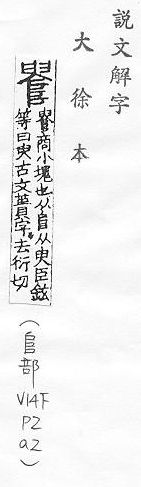 說文解字
大徐本
𠳋商小塊也从𠂤从臾臣鉉
等曰臾古文蕢字去衍切
(𠂤部
V14F
P2
a2)